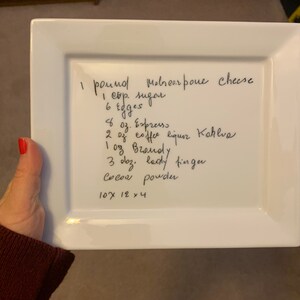 1 pound mascarpone cheese
1 cup sugar
6 Egges
8 oz Express
2 oz coffee liquor Kahlua
1 oz Brandy
3 doz. lady finger
Cocoa powder
10 x 12 x 4